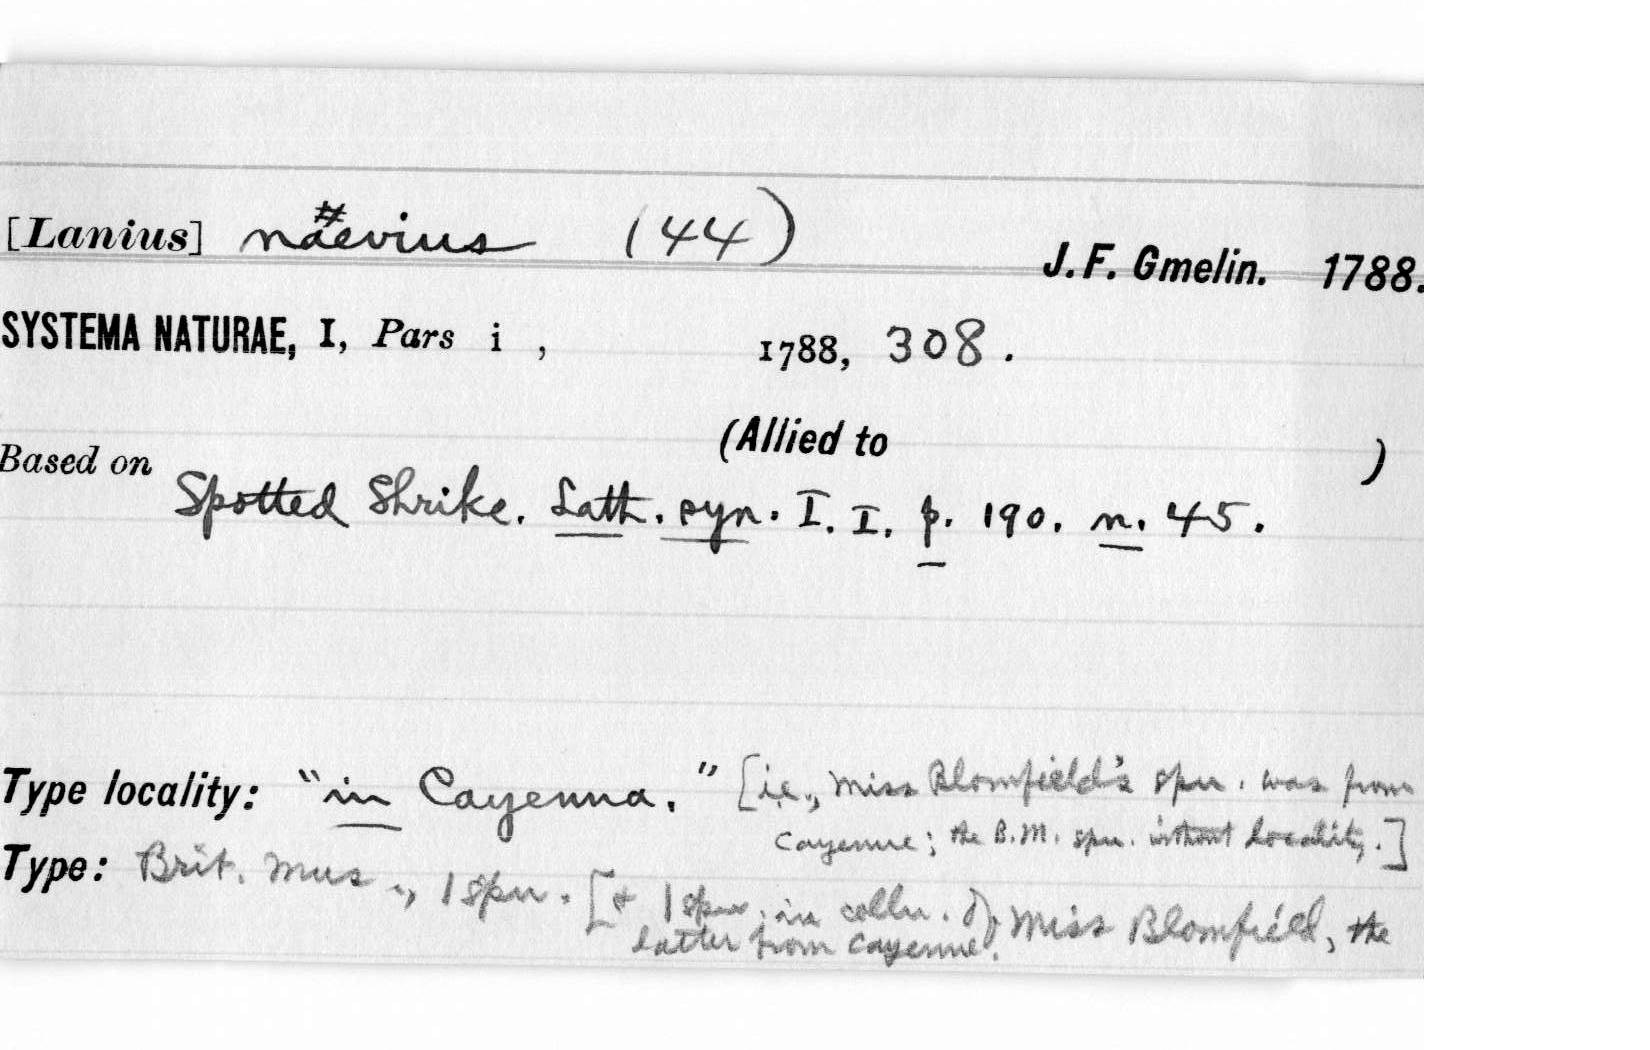 [Lanius] naevius (44)
#
J. F. Gmelin. 1788.
SYSTEMA NATURAE, I, Pars i , 1788, 308.
(Allied to )
Based on
Spotted Shrike. Lath. syn. I. I. p. 190. n. 45.
Type locality: "in Cayenna." [i.e., Miss Blomfield's spn. was from
Cayenne; the B.M. spn. without locality.]
Type: Brit. Mus., 1 spn. [+ 1 spn. in colln. of Miss Blomfield, the
latter from Cayenne.